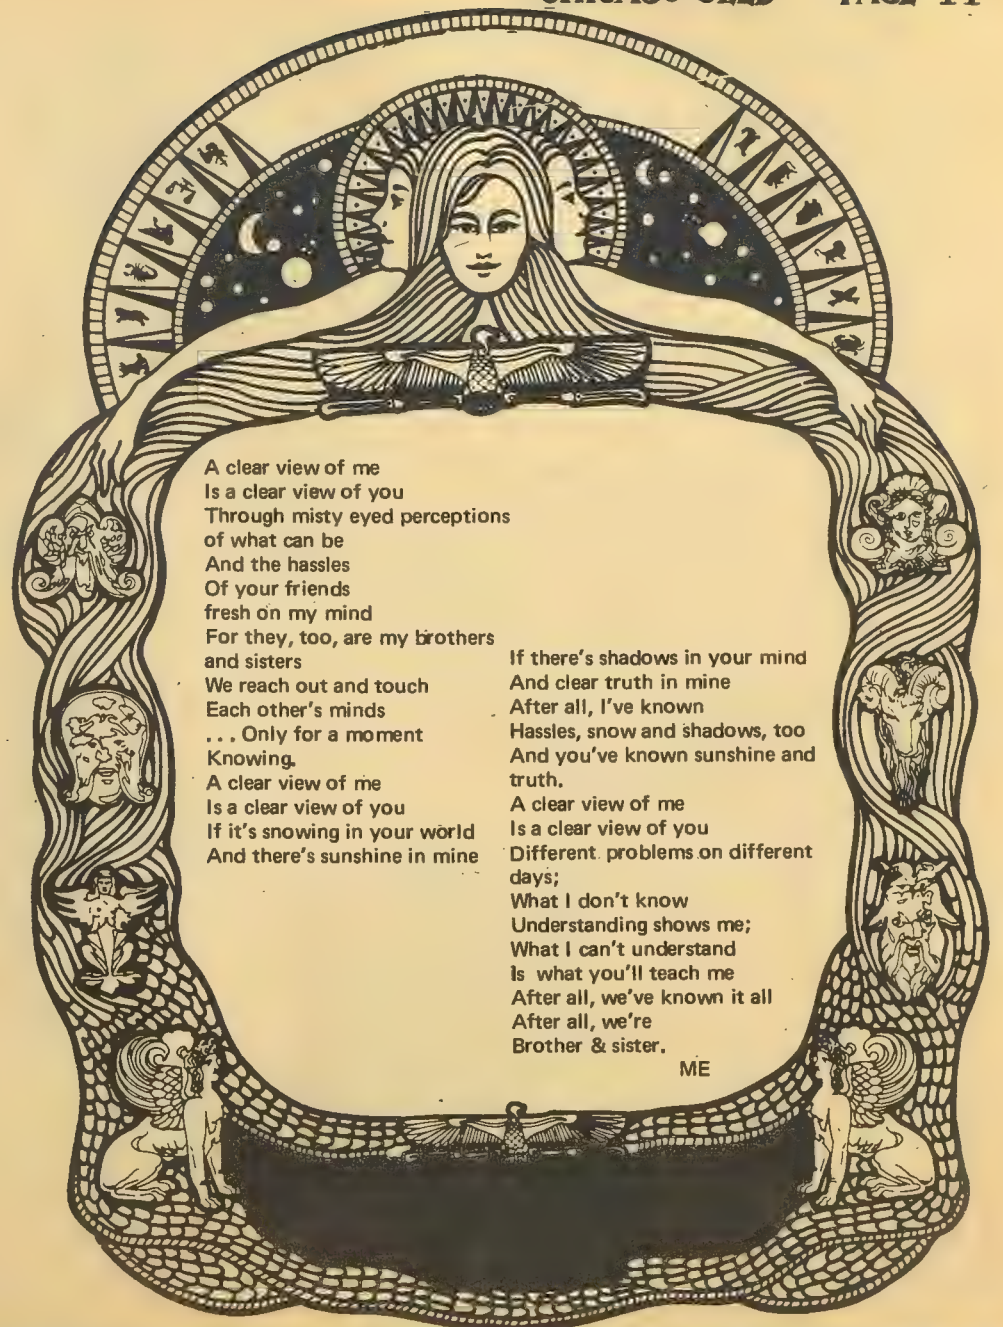 PAGE 11
A clear view of me
Is a clear view of you
Through misty eyed perceptions
of what can be
And the hassles
Of your friends
fresh on my mind
For they, too, are my brothers
and sisters
We reach out and touch
Each other's minds
. . . Only for a moment
Knowing.
A clear view of me
Is a clear view of you
If it's snowing in your world
And there's sunshine in mine
If there's shadows in your mind
And clear truth in mine
After all, I've known
Hassles, snow and shadows, too
And you've known sunshine and
truth.
A clear view of me
Is a clear view of you
Different problems on different
days;
What I don't know
Understanding shows me;
What I can't understand
Is what you'll teach me
After all, we've known it all
After all, we're
Brother & sister.
ME